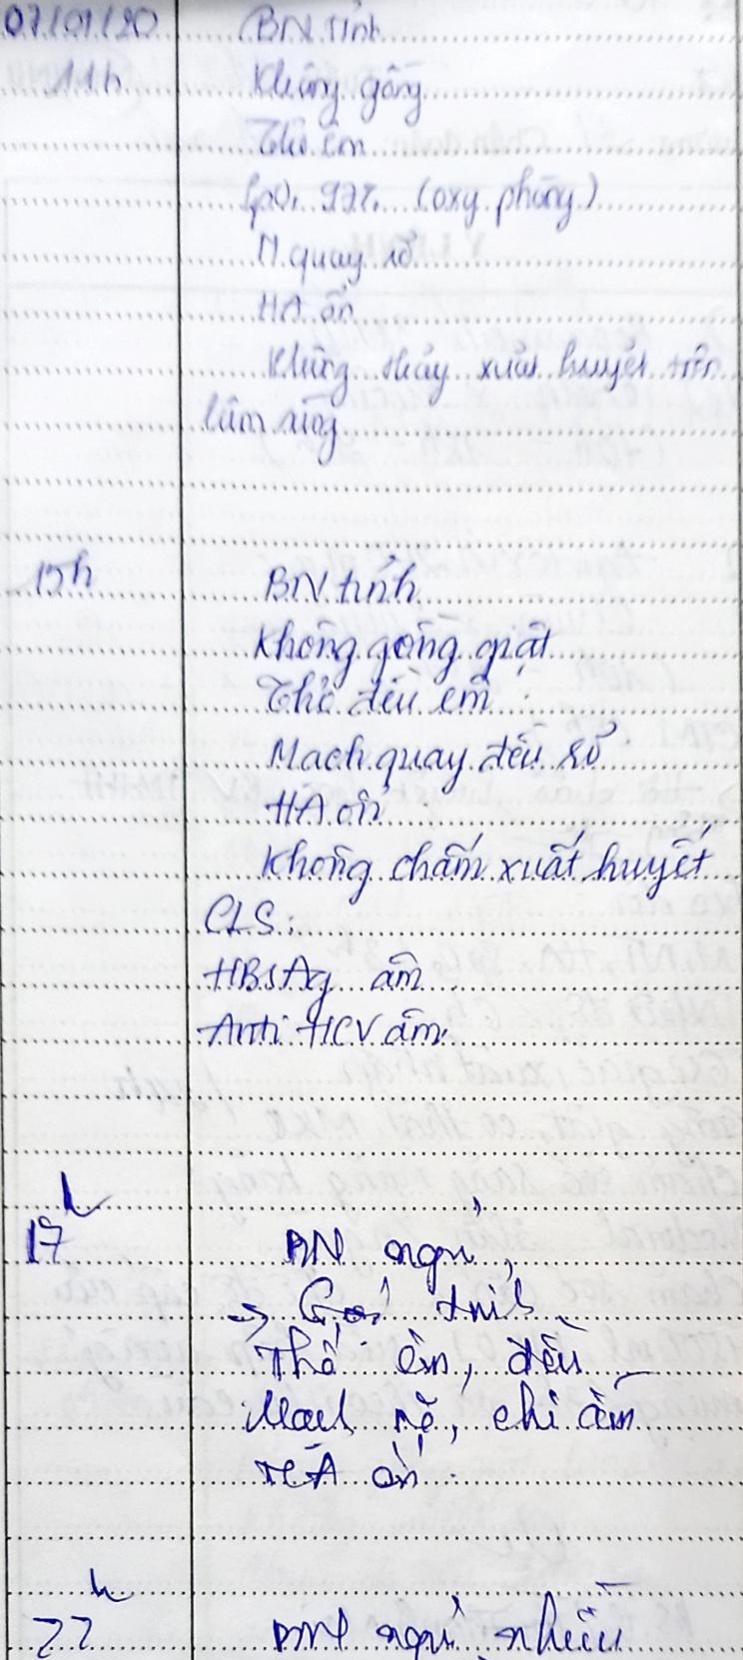 07/01/20 BN tỉnh
11h Không gồng
Thở êm
SpO₂ 97% (oxy phòng)
M quay rõ
HA ổn
Không thấy xuất huyết trên
lâm sàng
15h BN tỉnh
Không gồng giật
Thở đều êm
Mạch quay đều rõ
HA ổn
Không chấm xuất huyết
CLS:
HBsAg âm
Anti HCV âm
17h BN ngủ,
→ Gọi tỉnh
Thở êm, đều
Mạch rõ, chi ấm
HA ổn
22h BN ngủ nhiều